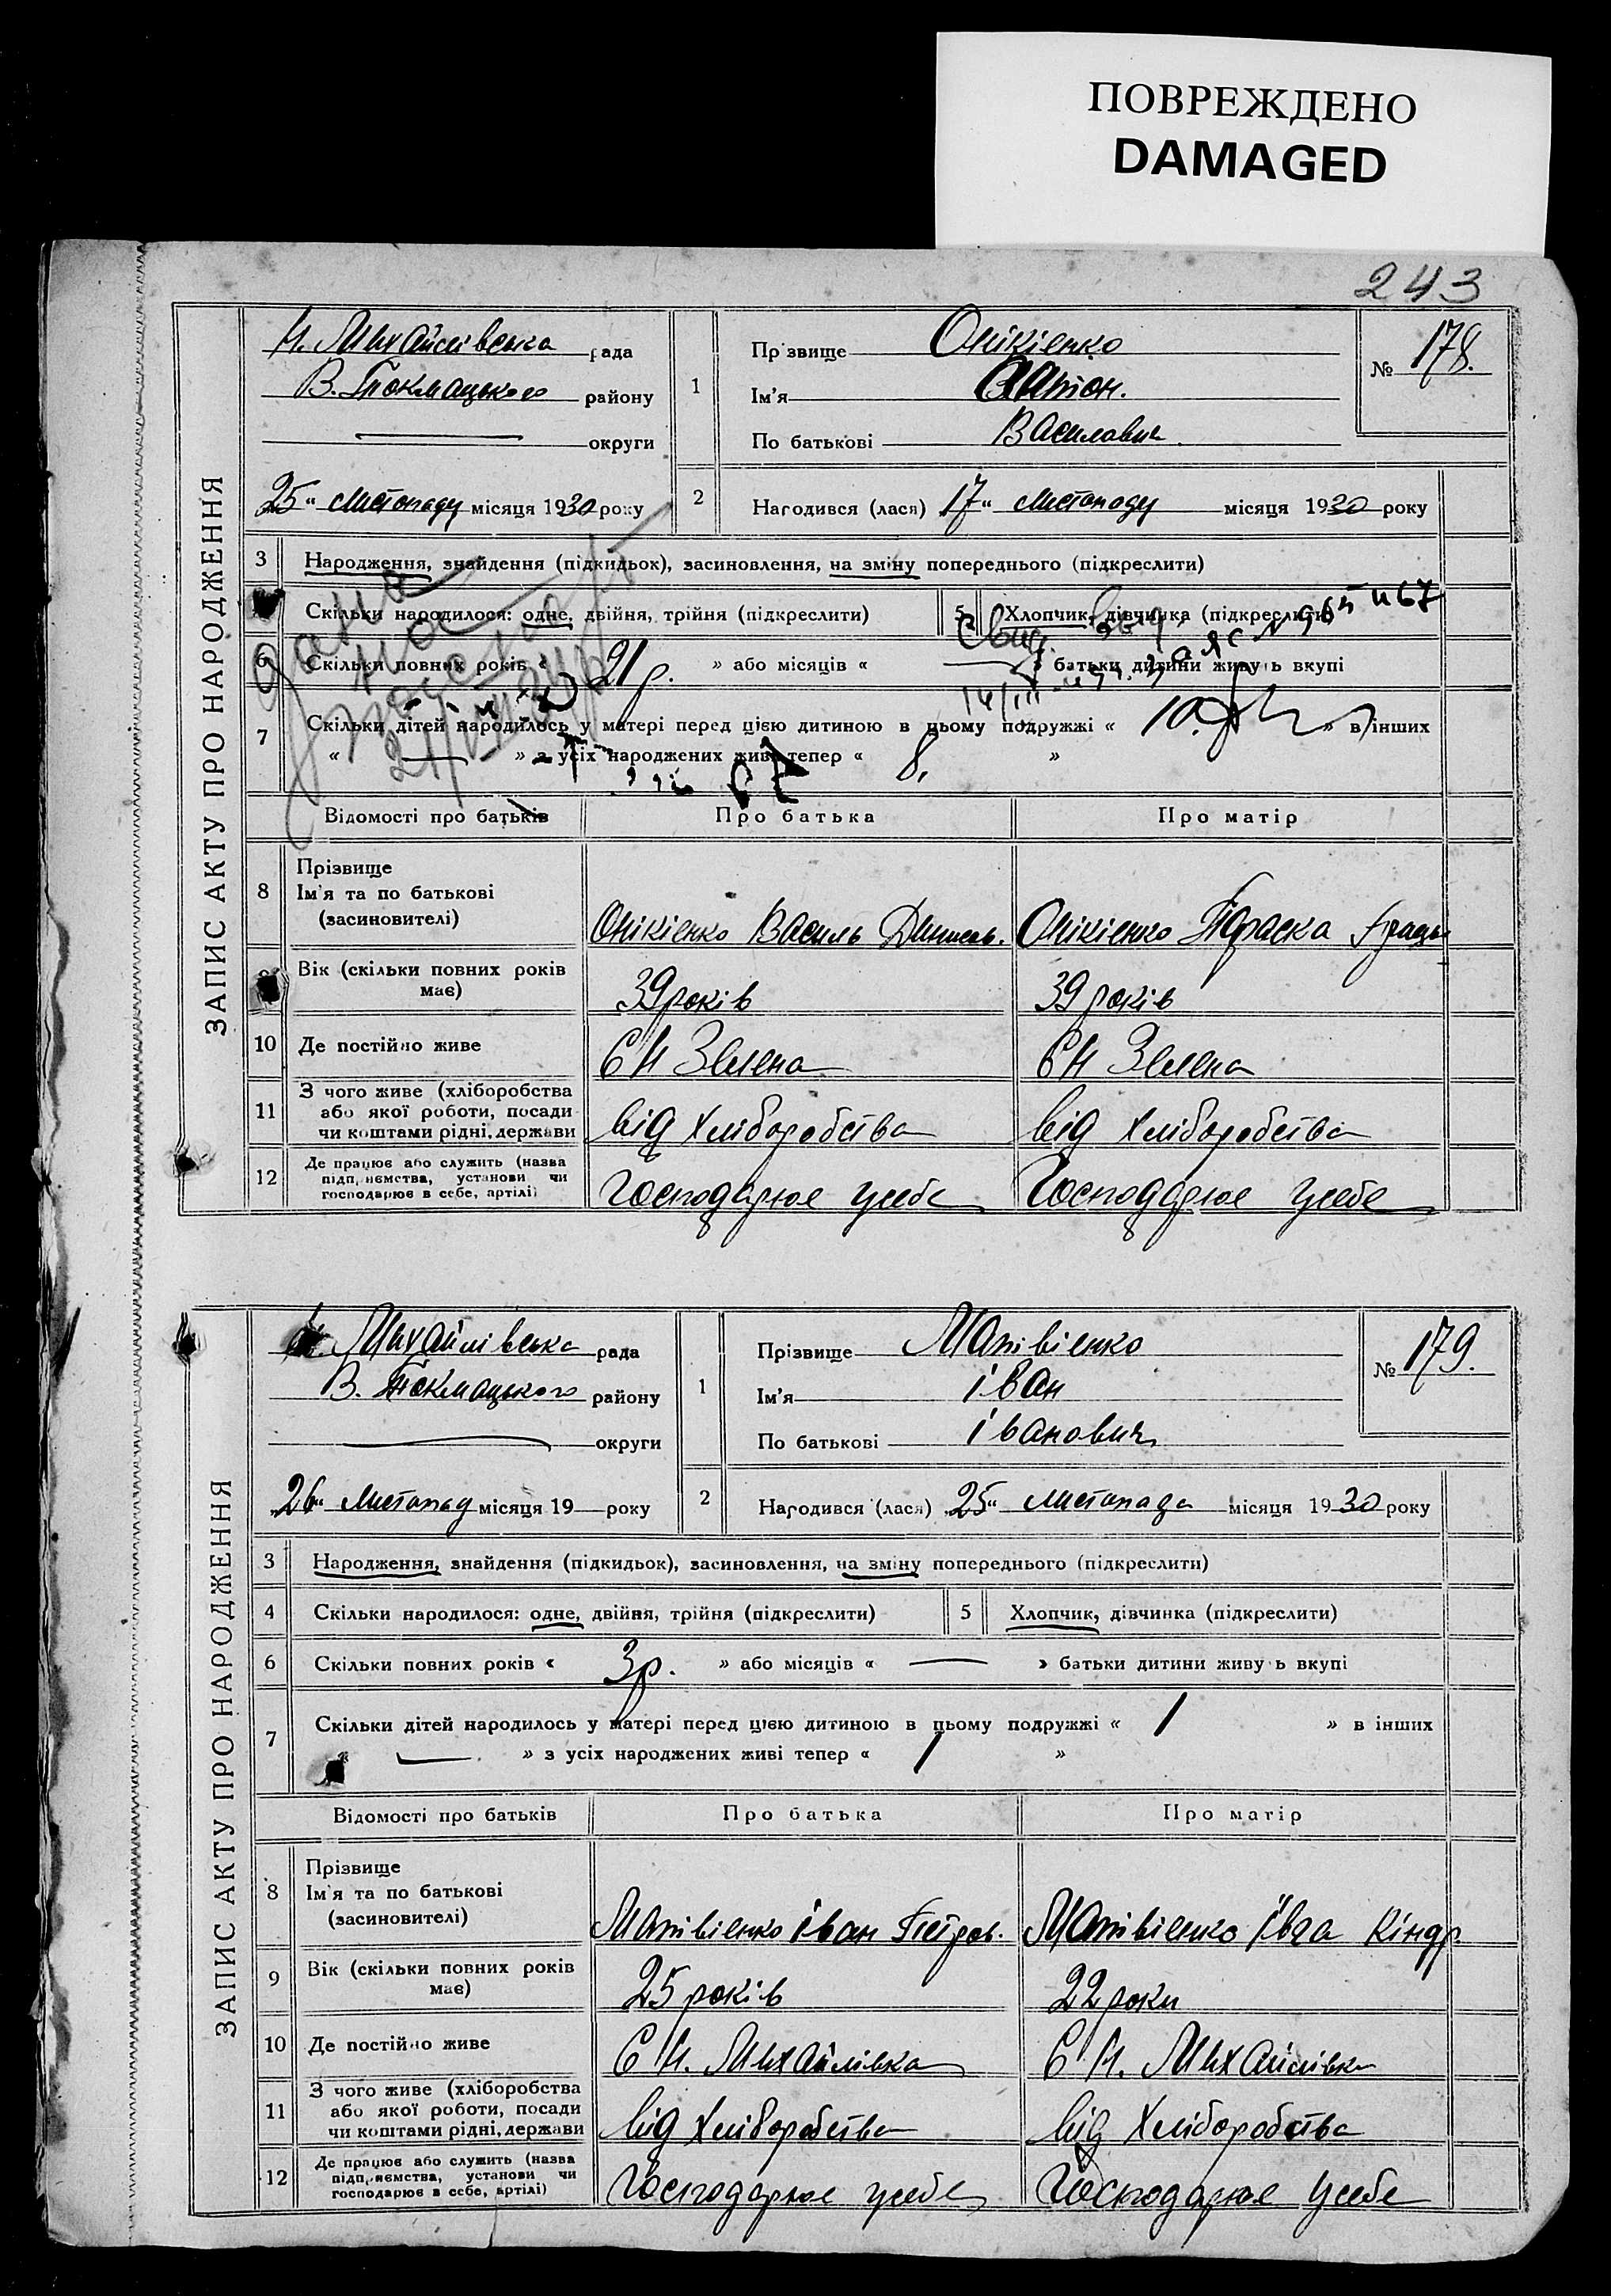 ПОВРЕЖДЕНО
DAMAGED
243
ЗАПИС АКТУ ПРО НАРОДЖЕННЯ
Н. Михайлівська рада
В. Токмацького району
округи
25 " листопаду місяця 1930 року
1
Прізвище Онікієнко
Ім'я Антон.
По батькові Василович
№ 178.
2
Народився (лася) 17 " листопаду місяця 1930 року
3 Народження, знайдення (підкидьок), засиновлення, на зміну попереднього (підкреслити)
Скільки народилося: одне, двійня, трійня (підкреслити) 5 Хлопчик, дівчинка (підкреслити)
6 Скільки повних років « 21 р. » або місяців « — » батьки дитини живуть вкупі
7 Скільки дітей народилось у матері перед цією дитиною в цьому подружжі « 10. » в інших
« — » з усіх народжених живі тепер « 8, »
Відомості про батьків Про батька Про матір
8 Прізвище
Ім'я та по батькові
(засиновителі)
Онікієнко Василь Денисов. Онікієнко Параска
Вік (скільки повних років
має)
39 років 39 років
10 Де постійно живе С Н Зелена С Н Зелена
11 З чого живе (хліборобства
або якої роботи, посади
чи коштами рідні, держави
від хліборобства від хліборобства
12 Де працює або служить (назва
підприємства, установи чи
господарює в себе, артілі)
Господарює усебе Господарює усебе
ЗАПИС АКТУ ПРО НАРОДЖЕННЯ
Михайлівська рада
В. Токмацького району
округи
26 " Листопад місяця 19 — року
1
Прізвище Матвієнко
Ім'я іван
По батькові іванович
№ 179.
2
Народився (лася) 25 " листопада місяця 1930 року
3 Народження, знайдення (підкидьок), засиновлення, на зміну попереднього (підкреслити)
4 Скільки народилося: одне, двійня, трійня (підкреслити) 5 Хлопчик, дівчинка (підкреслити)
6 Скільки повних років « 3 р. » або місяців « — » батьки дитини живуть вкупі
7 Скільки дітей народилось у матері перед цією дитиною в цьому подружжі « 1 » в інших
« — » з усіх народжених живі тепер « 1 »
Відомості про батьків Про батька Про матір
8 Прізвище
Ім'я та по батькові
(засиновителі)
Матвієнко іван Петров. Матвієнко Івга Кіндр.
9 Вік (скільки повних років
має)
25 років 22 роки
10 Де постійно живе С Н. Михайлівка С Н. Михайлівка
11 З чого живе (хліборобства
або якої роботи, посади
чи коштами рідні, держави
від хліборобства від хліборобства
12 Де працює або служить (назва
підприємства, установи чи
господарює в себе, артілі)
Господарює усебе Господарює усебе